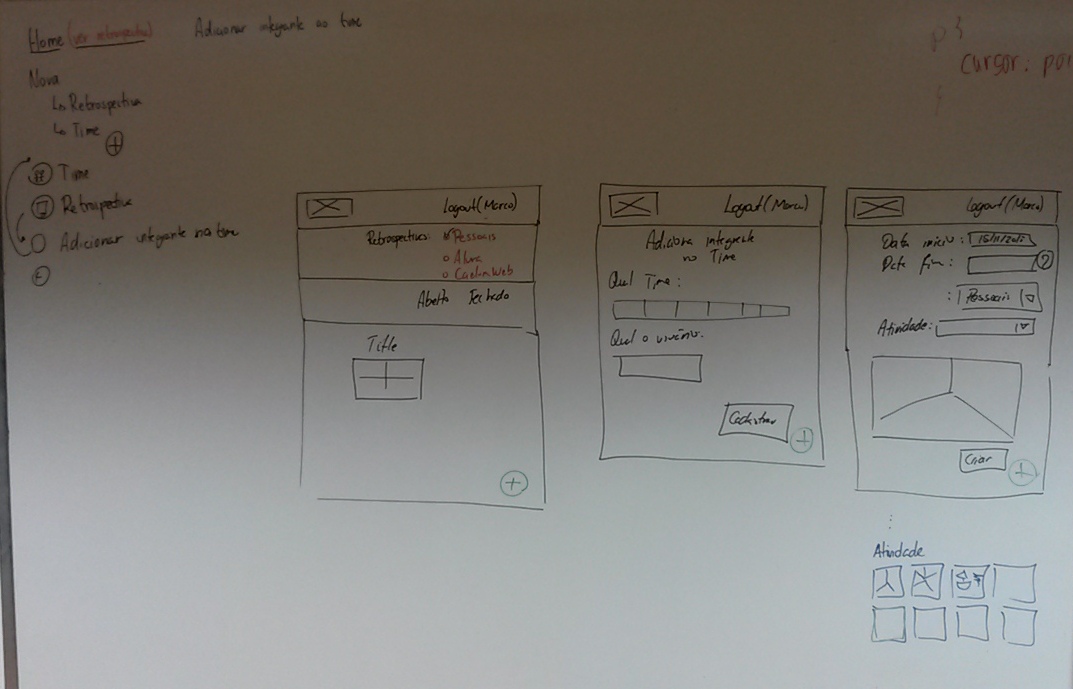 Home (ver retrospectiva)
Adicionar integrante ao time
p {
cursor: poi
}
Nova
↳ Retrospectiva
↳ Time
Time
Retrospectiva
Adicionar integrante no time
Logout (Marco)
Retrospectivas:
Pessoais
Alura
Caelum Web
Aberto Fechado
Title
Logout (Marco)
Adiciona integrante
no Time
Qual Time:
Qual o usuário:
Cadastrar
Logout (Marco)
Data início:
Data fim:
: Pessoais
Atividade:
Criar
Atividade